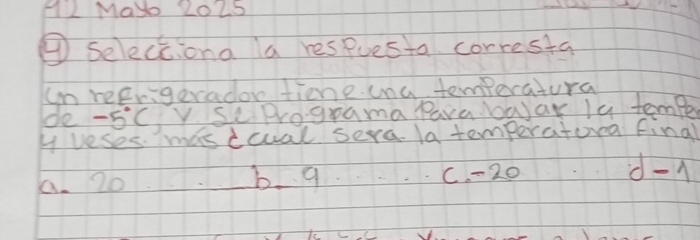 12 Mayo 2025
9 Selecciona la respuesta corresta
un refrigerador tiene una temperatura
de -5°C y se programa para bajar la tempe
4 veses mas cual sera la temperatura fina
a. 20 b. 9 c. -20 d -1